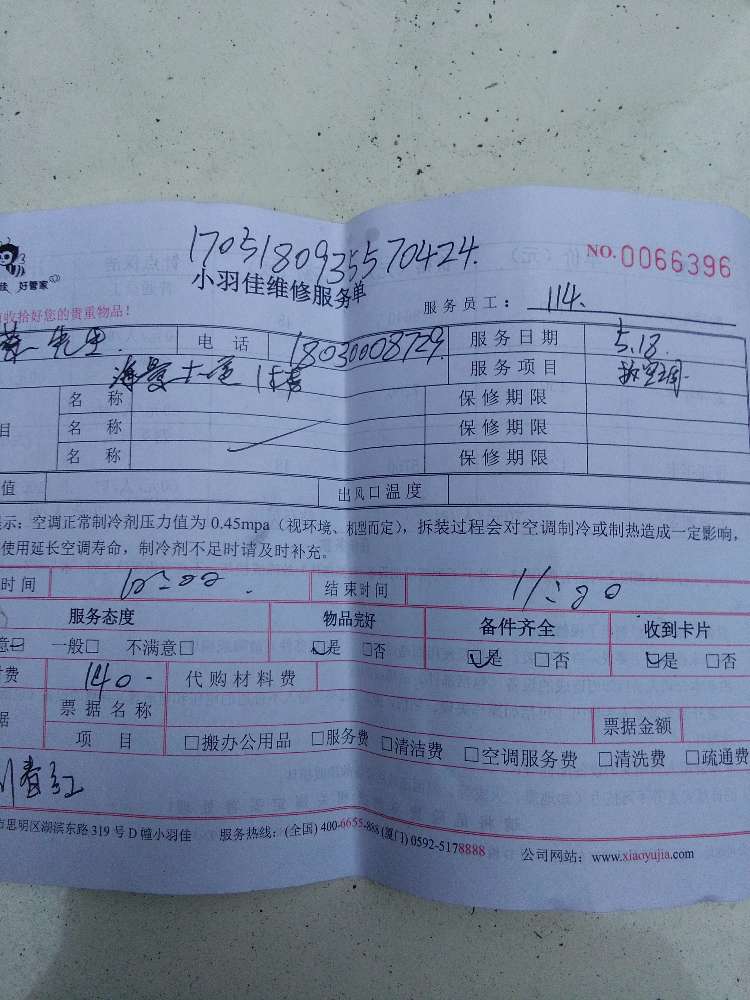 17051809355570424.
NO.0066396
佳 好管家
小羽佳维修服务单
收拾好您的贵重物品!
服务员工: 114.
先生 电话 18030008729. 服务日期 5.18
服务项目 拆空调.
名称 保修期限
目 名称 保修期限
名称 保修期限
值 出风口温度
示:空调正常制冷剂压力值为 0.45mpa(视环境、机型而定),拆装过程会对空调制冷或制热造成一定影响,
使用延长空调寿命,制冷剂不足时请及时补充。
时间 10:00 结束时间 11:20
服务态度 物品完好 备件齐全 收到卡片
意☑ 一般□ 不满意□ ☑是 □否 ☑是 □否 ☑是 □否
费 140. 代购材料费
据 票据名称 票据金额
项目 □搬办公用品 □服务费 □清洁费 □空调服务费 □清洗费 □疏通费
春红
市思明区湖滨东路 319 号 D 幢小羽佳 服务热线:(全国) 400-6655-868 (厦门) 0592-5178888 公司网站:www.xiaoyujia.com